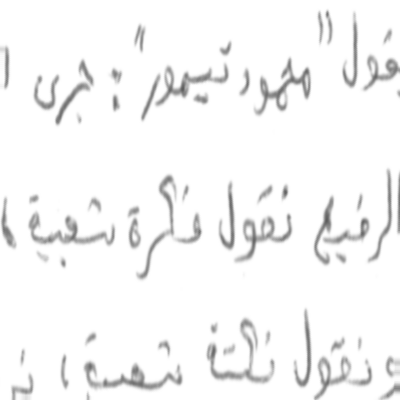 يقول "محمود تيمور": جرى ا
الرفيع نقول فكرة شعبية،
ونقول نكتة شعبية،